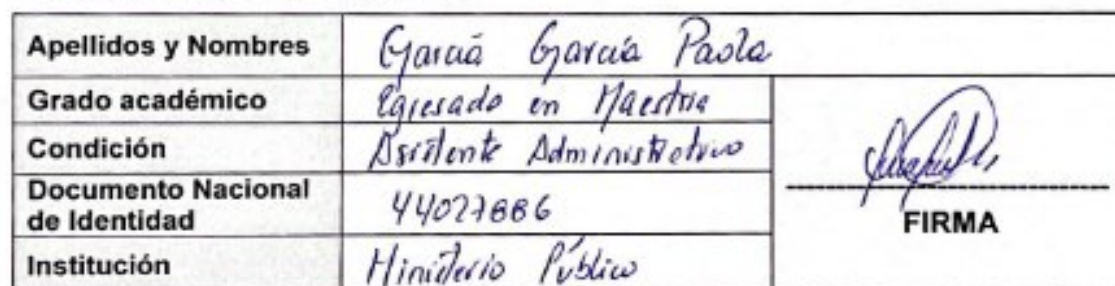 Apellidos y Nombres García García Paola
Grado académico Egresado en Maestria
Condición Asistente Administrativo
Documento Nacional
de Identidad 44027886
FIRMA
Institución Ministerio Público